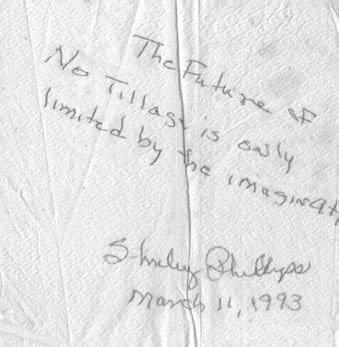 The Future of
No Tillage is only
limited by the imaginat
Shirley Phillips
March 11, 1993